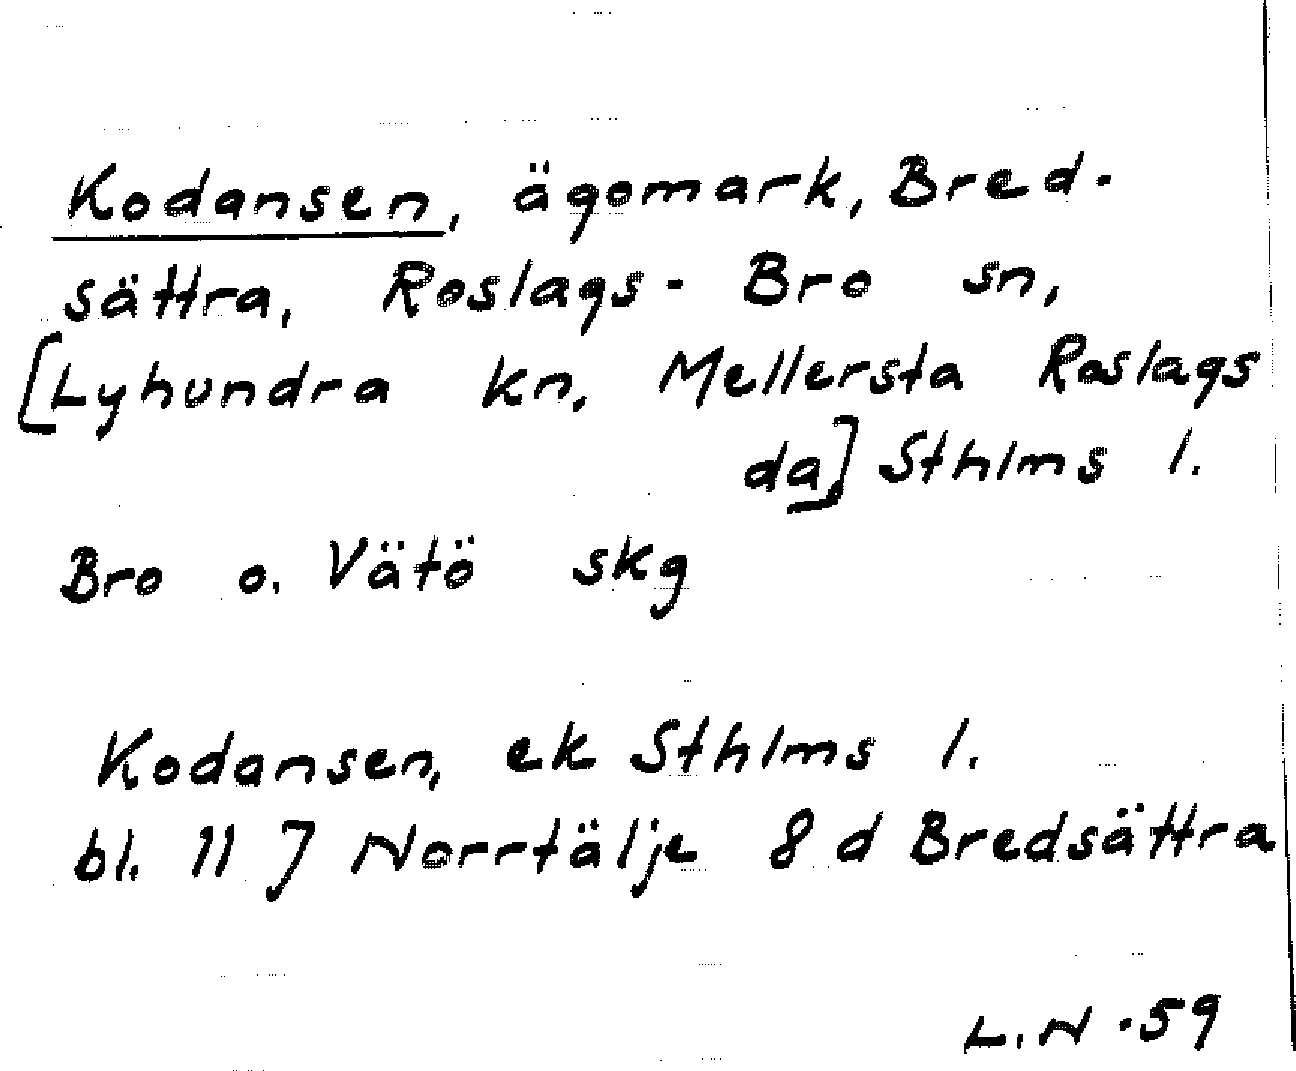 Kodansen, ägomark, Bred-
sättra, Roslags-Bro sn,
[Lyhundra kn. Mellersta Roslags
da] Sthlms l.
Bro o. Vätö skg
Kodansen, ek Sthlms l.
bl. 11 J Norrtälje 8 d Bredsättra
L.N -59